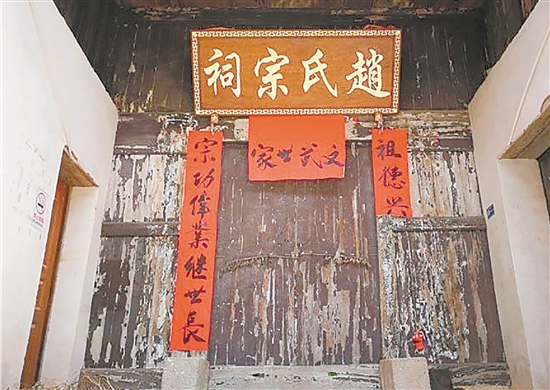 趙氏宗祠
文武世家
祖德興
宗功偉業繼世長